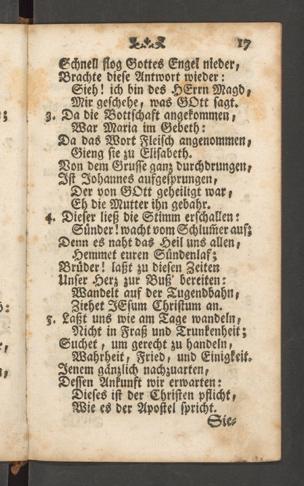 17
Schnell flog Gottes Engel nieder,
Brachte diese Antwort wieder:
Sieh! ich bin des HErrn Magd,
Mir geschehe, was GOtt sagt.
3. Da die Bottschaft angekommen,
War Maria im Gebeth:
Da das Wort Fleisch angenommen,
Gieng sie zu Elisabeth.
Von dem Grusse ganz durchdrungen,
Ist Johannes aufgesprungen,
Der von GOtt geheiligt war,
Eh die Mutter ihn gebahr.
4. Dieser ließ die Stimm erschallen:
Sünder! wacht vom Schlum̅er auf;
Denn es naht das Heil uns allen,
Hemmet euren Sündenlaf;
Brüder! laßt zu diesen Zeiten
Unser Herz zur Buß' bereiten:
Wandelt auf der Tugendbahn,
Ziehet JEsum Christum an.
5. Laßt uns wie am Tage wandeln,
Nicht in Fraß und Trunkenheit;
Suchet, um gerecht zu handeln,
Wahrheit, Fried, und Einigkeit.
Jenem gänzlich nachzuarten,
Dessen Ankunft wir erwarten:
Dieses ist der Christen pflicht,
Wie es der Apostel spricht.
Sie-